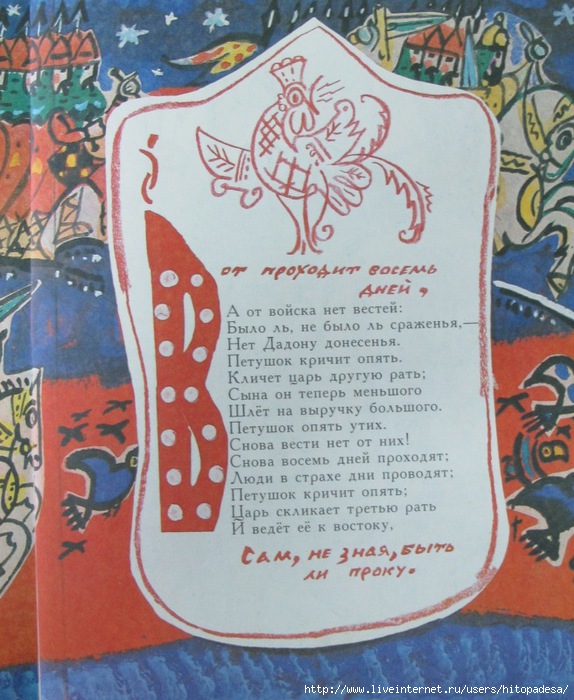 Вот проходит восемь
дней,
А от войска нет вестей:
Было ль, не было ль сраженья,—
Нет Дадону донесенья.
Петушок кричит опять.
Кличет царь другую рать;
Сына он теперь меньшого
Шлёт на выручку большого.
Петушок опять утих.
Снова вести нет от них!
Снова восемь дней проходят;
Люди в страхе дни проводят;
Петушок кричит опять;
Царь скликает третью рать
И ведёт её к востоку,
Сам, не зная, быть
ли проку.
http://www.liveinternet.ru/users/hitopadesa/